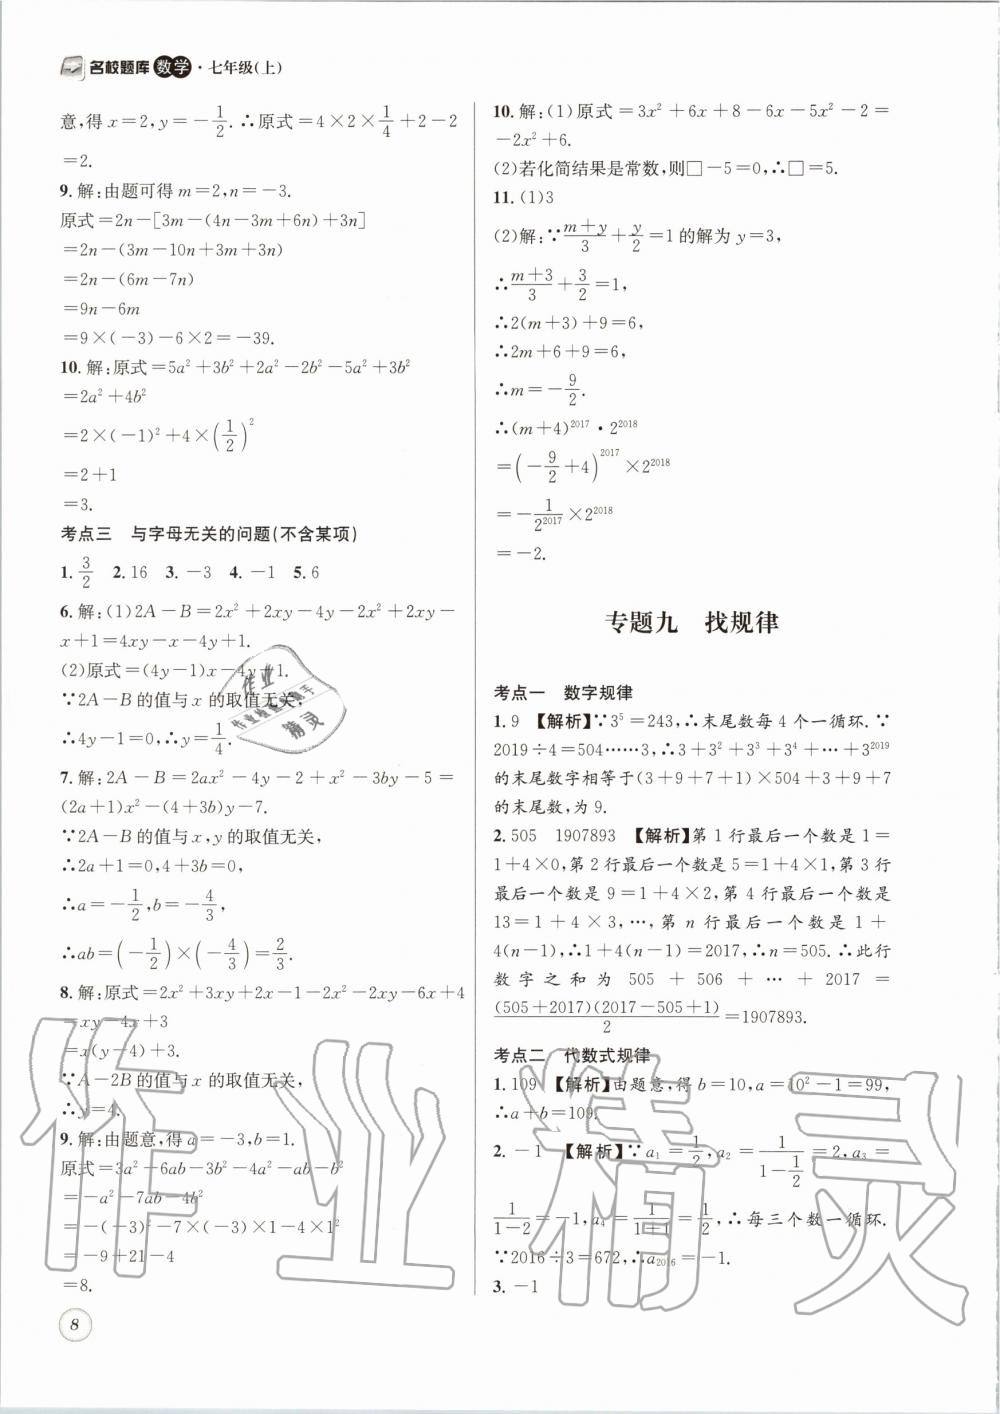 名校题库 数学·七年级(上)
意,得 x=2,y=-1/2.∴原式=4×2×1/4+2-2
=2.
9.解:由题可得 m=2,n=-3.
原式=2n-[3m-(4n-3m+6n)+3n]
=2n-(3m-10n+3m+3n)
=2n-(6m-7n)
=9n-6m
=9×(-3)-6×2=-39.
10.解:原式=5a²+3b²+2a²-2b²-5a²+3b²
=2a²+4b²
=2×(-1)²+4×(1/2)²
=2+1
=3.
考点三 与字母无关的问题(不含某项)
1.3/2 2.16 3.-3 4.-1 5.6
6.解:(1)2A-B=2x²+2xy-4y-2x²+2xy-
x+1=4xy-x-4y+1.
(2)原式=(4y-1)x-4y+1.
∵2A-B的值与 x 的取值无关,
∴4y-1=0,∴y=1/4.
7.解:2A-B=2ax²-4y-2+x²-3by-5=
(2a+1)x²-(4+3b)y-7.
∵2A-B的值与 x,y 的取值无关,
∴2a+1=0,4+3b=0,
∴a=-1/2,b=-4/3,
∴ab=(-1/2)×(-4/3)=2/3.
8.解:原式=2x²+3xy+2x-1-2x²-2xy-6x+4
=xy-4x+3
=x(y-4)+3.
∵A-2B的值与 x 的取值无关,
∴y=4.
9.解:由题意,得 a=-3,b=1.
原式=3a²-6ab-3b²-4a²-ab-b²
=-a²-7ab-4b²
=-(-3)²-7×(-3)×1-4×1²
=-9+21-4
=8.
8
10.解:(1)原式=3x²+6x+8-6x-5x²-2=
-2x²+6.
(2)若化简结果是常数,则□-5=0,∴□=5.
11.(1)3
(2)解:∵(m+y)/3+y/2=1的解为 y=3,
∴(m+3)/3+3/2=1,
∴2(m+3)+9=6,
∴2m+6+9=6,
∴m=-9/2.
∴(m+4)²⁰¹⁷·2²⁰¹⁸
=(-9/2+4)²⁰¹⁷×2²⁰¹⁸
=-1/2²⁰¹⁷×2²⁰¹⁸
=-2.
专题九 找规律
考点一 数字规律
1.9 【解析】∵3⁵=243,∴末尾数每 4 个一循环.∵
2019÷4=504……3,∴3+3²+3³+3⁴+…+3²⁰¹⁹
的末尾数字相等于(3+9+7+1)×504+3+9+7
的末尾数,为 9.
2.505 1907893 【解析】第 1 行最后一个数是 1=
1+4×0,第 2 行最后一个数是 5=1+4×1,第 3 行
最后一个数是 9=1+4×2,第 4 行最后一个数是
13=1+4×3,…,第 n 行最后一个数是 1+
4(n-1),∴1+4(n-1)=2017,∴n=505.∴此行
数字之和为 505+506+…+2017=
(505+2017)(2017-505+1)/2=1907893.
考点二 代数式规律
1.109 【解析】由题意,得 b=10,a=10²-1=99,
∴a+b=109.
2.-1 【解析】∵a₁=1/2,a₂=1/(1-1/2)=2,a₃=
1/(1-2)=-1,a₄=1/(1+1)=1/2,∴每三个数一循环.
∵2016÷3=672,∴a₂₀₁₆=-1.
3.-1
作业
作业检查小助手
精灵
作业精灵